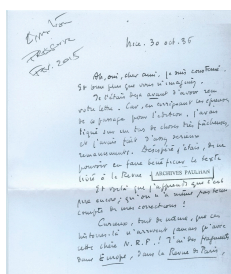 Nice. 30 oct. 35
Ah, oui, cher ami. je suis consterné.
Et bien plus que vous n'imaginez.
Je l'étais déjà avant d'avoir reçu
votre lettre. Car, en corrigeant les épreuves
de ce passage pour l'édition, j'avais
tiqué sur un tas de choses très fâcheuses,
et j'avais fait d'assez sérieux
remaniements. Désespéré, alors, de ne
pouvoir en faire bénéficier le texte
livré à la Revue
ARCHIVES PAULHAN
Et voilà que j'apprends que c'est
pire encore; qu'on n'a même pas tenu
compte de mes corrections!
Curieux, tout de même, que ces
histoires-là n'arrivent jamais qu'avec
cette chère N.R.F.! J'ai des fragments
dans Europe, dans la Revue de Paris,